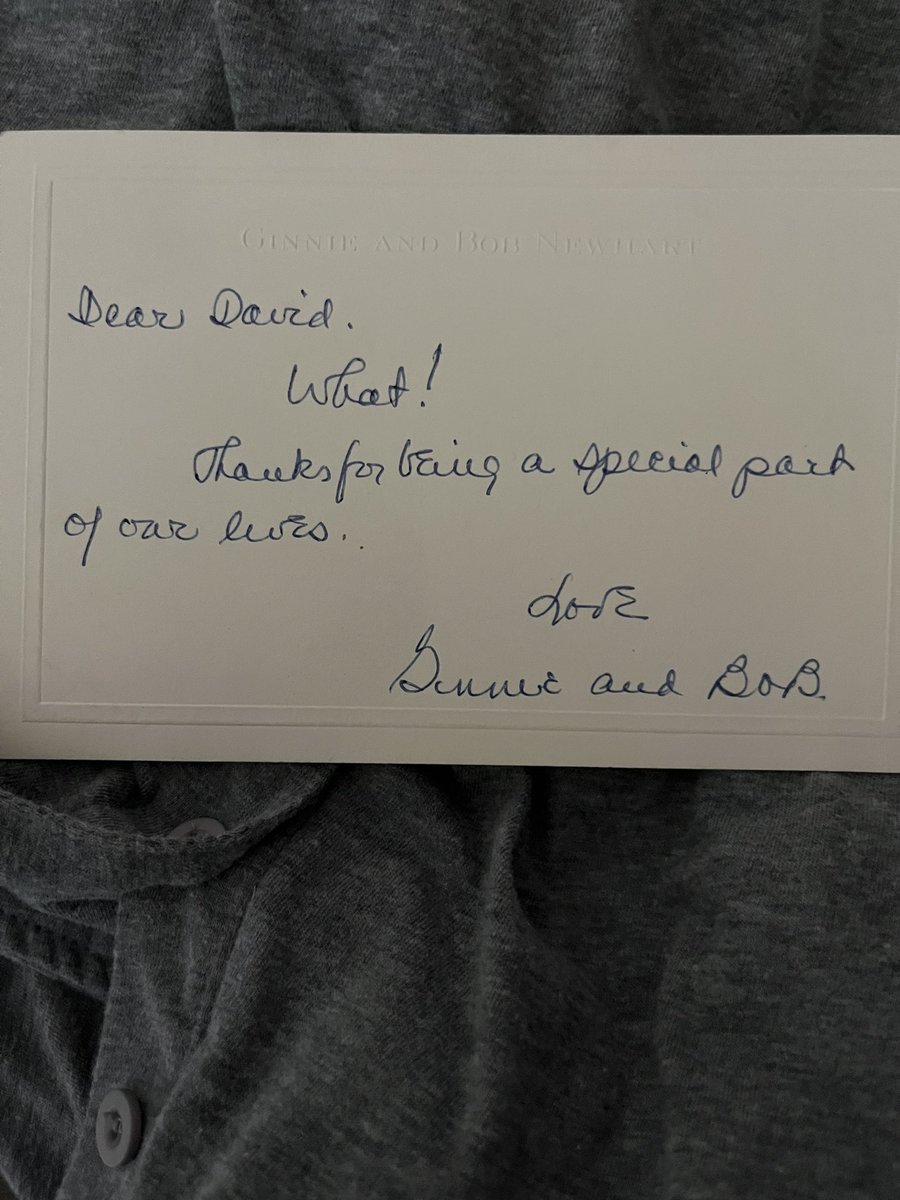 GINNIE AND BOB NEWHART
Dear David.
What!
Thanks for being a special part
of our lives.
Love
Ginnie and BOB.